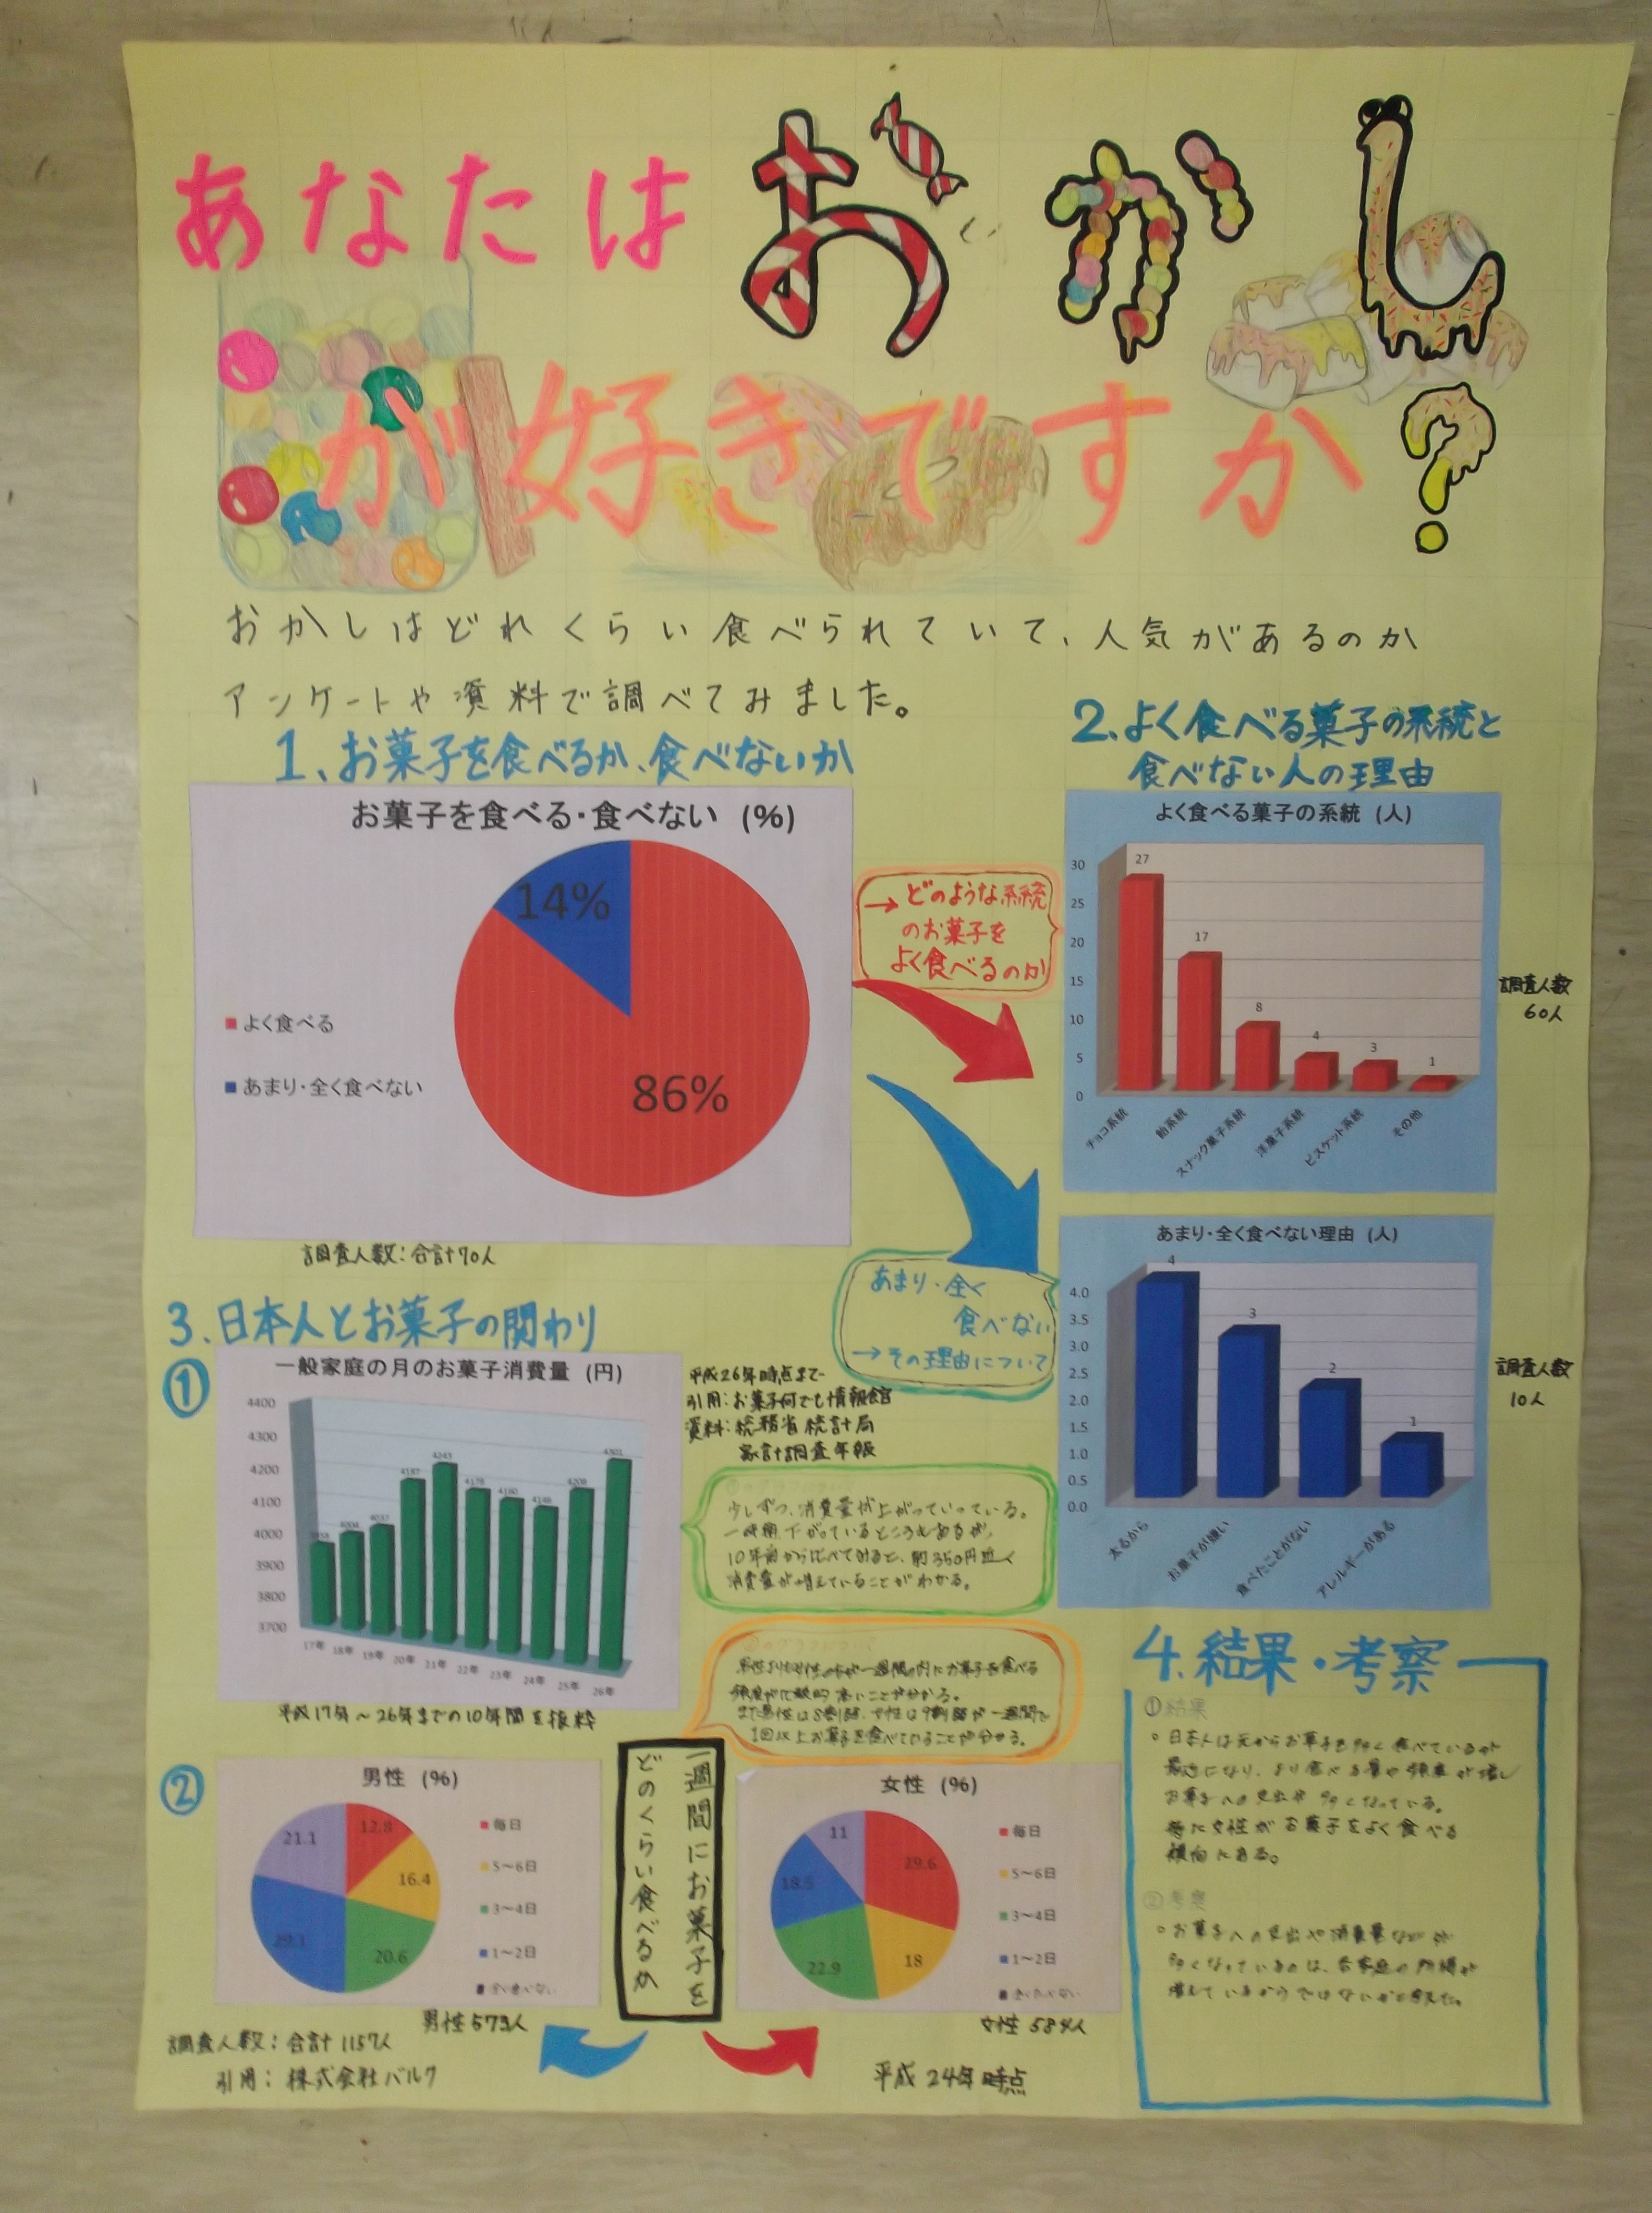 あなたは おかし
が好きですか?
おかしはどれくらい食べられていて、人気があるのか
アンケートや資料で調べてみました。
1、お菓子を食べるか、食べないか
お菓子を食べる・食べない (%)
14%
86%
よく食べる
あまり・全く食べない
調査人数:合計70人
→どのような系統
のお菓子を
よく食べるのか
2、よく食べる菓子の系統と
食べない人の理由
よく食べる菓子の系統 (人)
30
25
20
15
10
5
0
27
17
8
4
3
1
チョコ系統
飴系統
スナック菓子系統
洋菓子系統
ビスケット系統
その他
調査人数
60人
あまり・全く
食べない
→その理由について
あまり・全く食べない理由 (人)
4.0
3.5
3.0
2.5
2.0
1.5
1.0
0.5
0.0
4
3
2
1
太るから
お菓子が嫌い
食べたことがない
アレルギーがある
調査人数
10人
3.日本人とお菓子の関わり
①
一般家庭の月のお菓子消費量 (円)
4400
4300
4200
4100
4000
3900
3800
3700
4004
4037
4187
4243
4178
4160
4149
4208
4301
17年
18年
19年
20年
21年
22年
23年
24年
25年
26年
平成17年~26年までの10年間を抜粋
平成26年時点まで
引用:お菓子何でも情報館
資料:総務省統計局
家計調査年報
少しずつ、消費量が上がっていっている。
一時期、下がっているところもあるが、
10年前から比べてみると、約350円近く
消費量が増えていることがわかる。
男性よりも女性の方が一週間の内にお菓子を食べる
頻度が比較的高いことが分かる。
また男性は8割弱、女性は9割弱が一週間で
1回以上お菓子を食べていることが分かる。
②
男性 (%)
12.8
16.4
20.6
29.1
21.1
毎日
5~6日
3~4日
1~2日
男性573人
一週間にお菓子を
どのくらい食べるか
女性 (%)
29.6
18
22.9
18.5
11
毎日
5~6日
3~4日
1~2日
女性 584人
調査人数:合計1157人
引用:株式会社バルク
平成24年時点
4.結果・考察
①結果
日本人は元からお菓子を多く食べているが
最近になり、より食べる量や頻度が増し
お菓子への支出が多くなっている。
特に女性がお菓子をよく食べる
傾向にある。
②考察
お菓子への支出や消費量などが
多くなっているのは、各家庭の所得が
増えているからではないかと考えた。